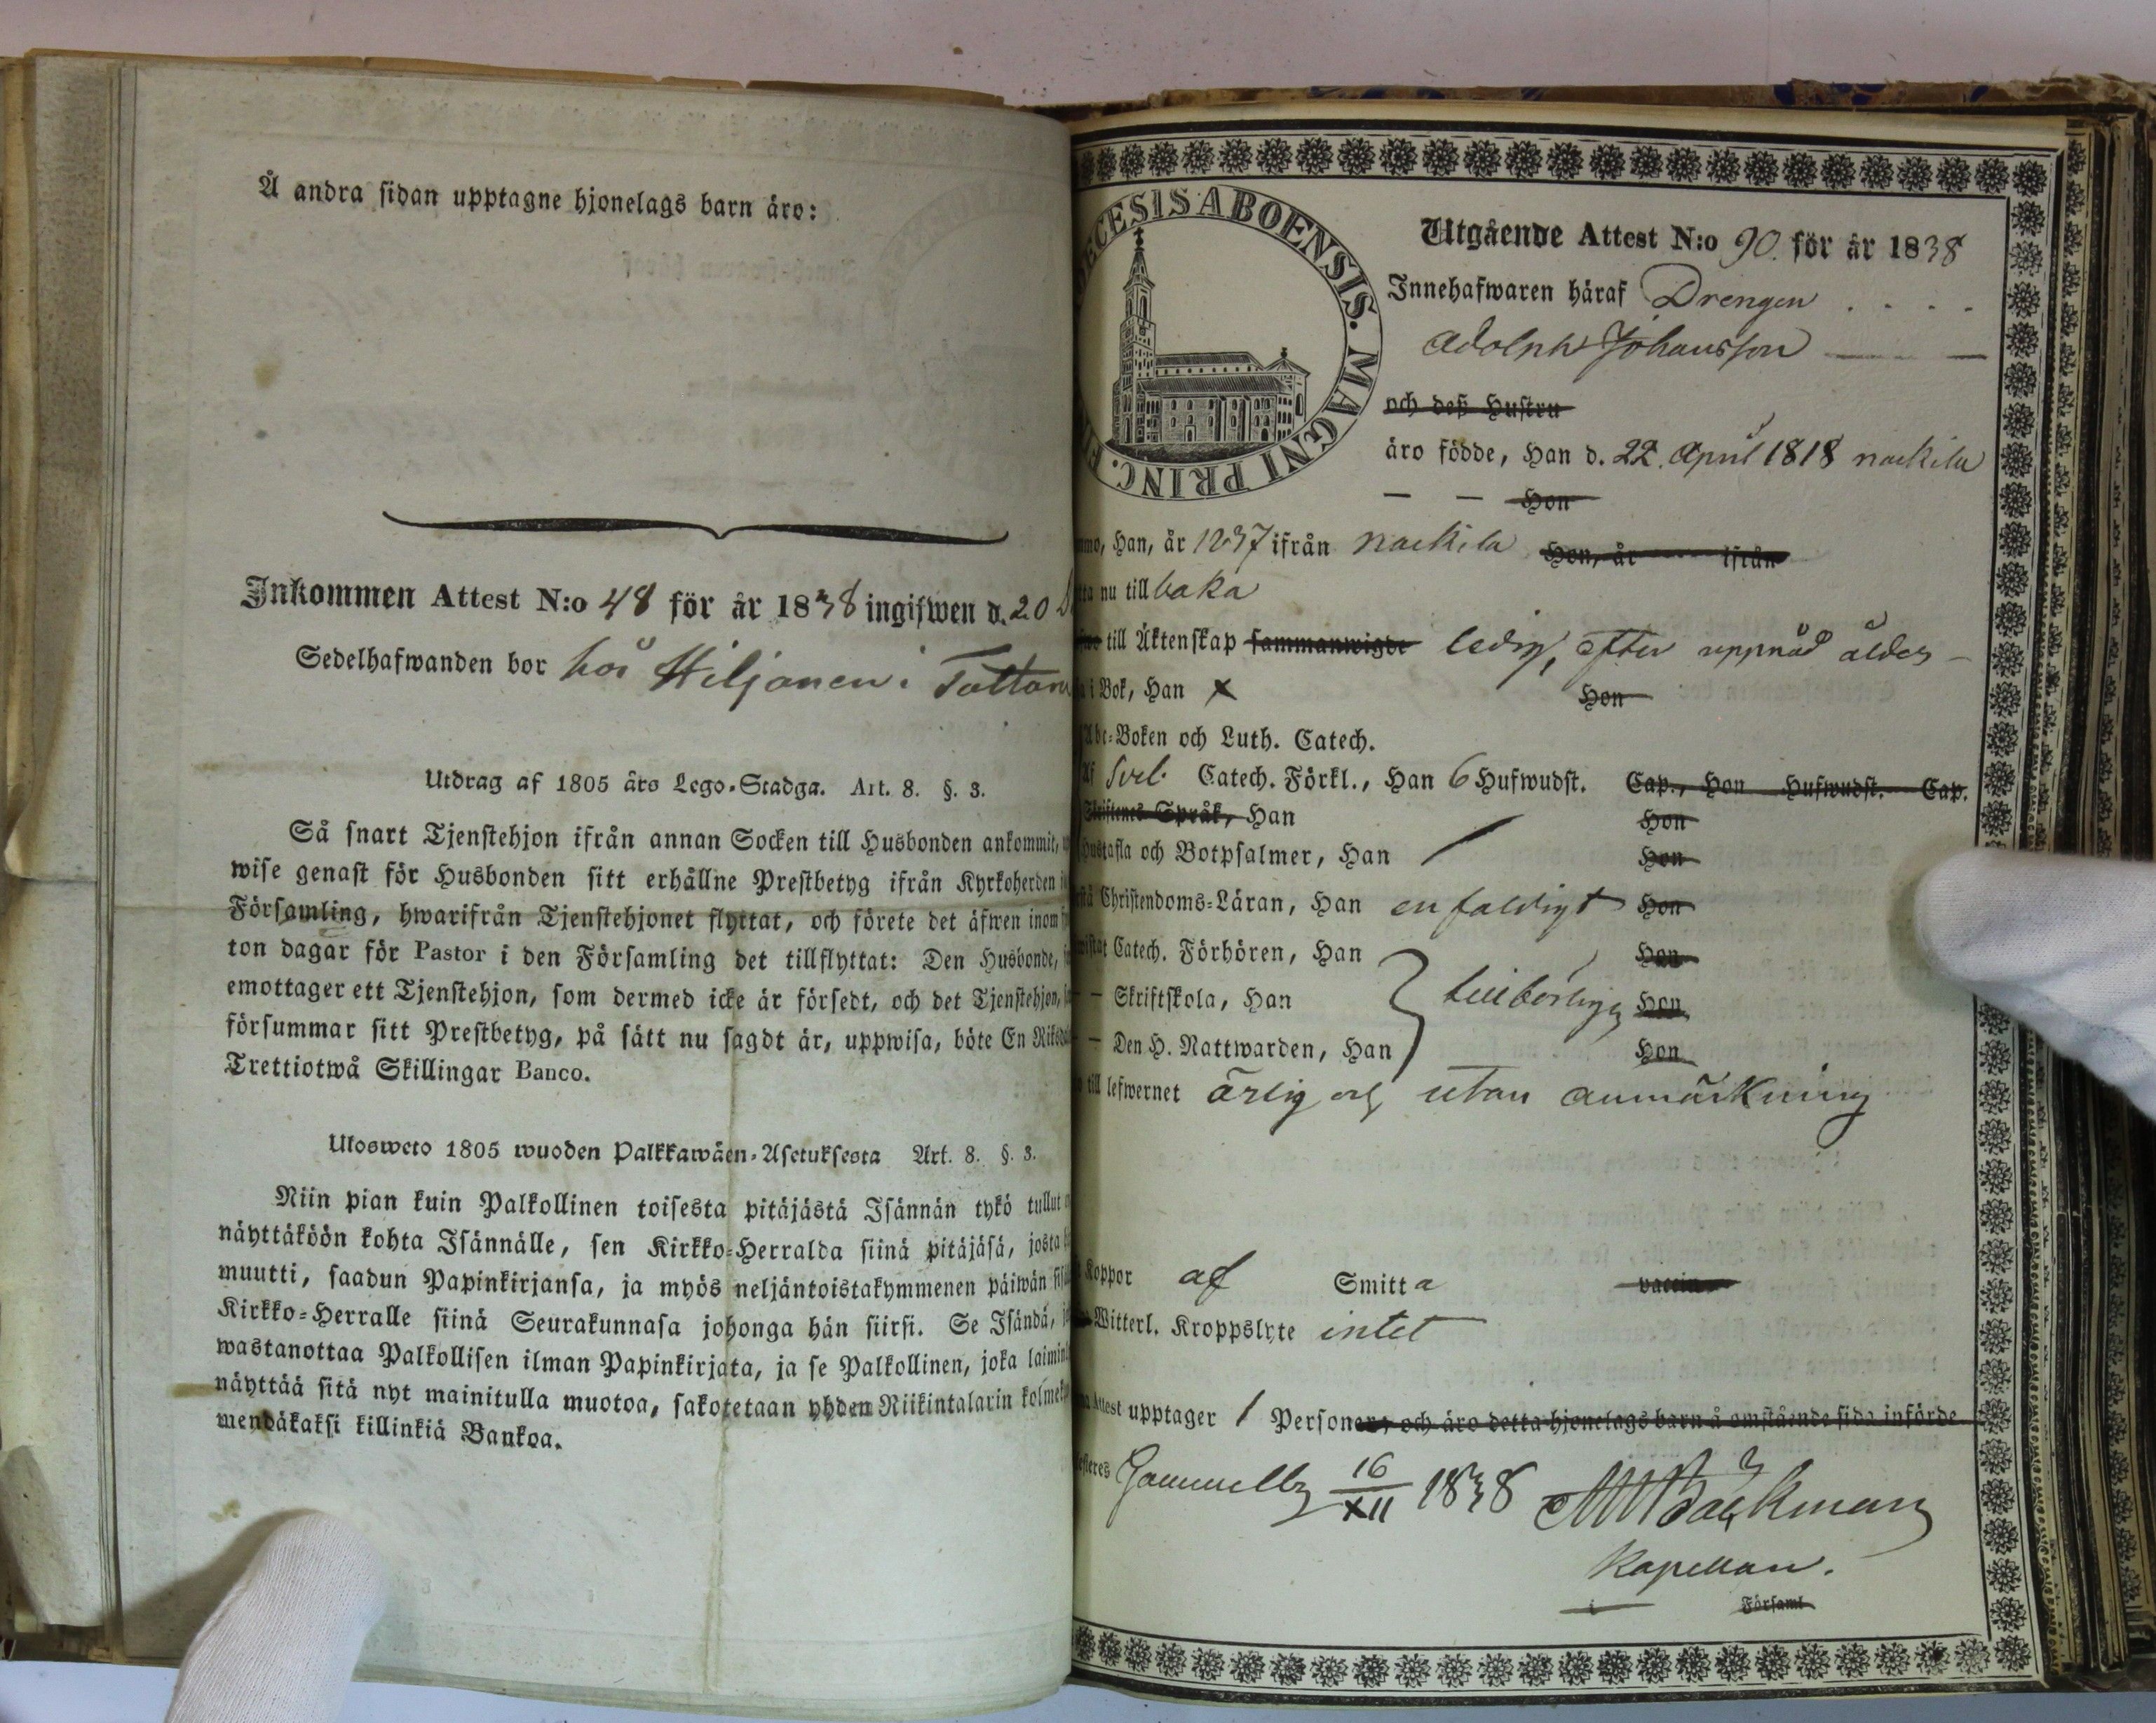 Å andra sidan upptagne hjonelags barn äro:
Inkommen Attest N:o 48 för år 1838 ingifwen d. 20
Sedelhafwanden bor hos Hiljanen i
Utdrag af 1805 års Lego-Stadga. Art. 8. §. 3.
Så snart Tjenstehjon ifrån annan Socken till Husbonden ankommit,
wise genast för Husbonden sitt erhållne Prestbetyg ifrån Kyrkoherden
Församling, hwarifrån Tjenstehjonet flyttat, och förete det äfwen inom
ton dagar för Pastor i den Församling det tillflyttat: Den Husbonde,
emottager ett Tjenstehjon, som dermed icke är försedt, och det Tjenstehjon,
försummar sitt Prestbetyg, på sätt nu sagdt är, uppwisa, böte En
Trettiotwå Skillingar Banco.
Ulosweto 1805 wuoden Palkkawäen-Asetuksesta Art. 8. §. 3.
Niin pian kuin Palkollinen toisesta pitäjästä Isännän tykö tullut
näyttäköön kohta Isännälle, sen Kirkko-Herralda siinä pitäjäsä, josta
muutti, saadun Papinkirjansa, ja myös neljäntoistakymmenen päiwän
Kirkko-Herralle siinä Seurakunnasa johonga hän siirsi. Se Isändä,
wastanottaa Palkollisen ilman Papinkirjata, ja se Palkollinen, joka
näyttää sitä nyt mainitulla muotoa, sakotetaan yhden Riikintalarin
mendäkaksi killinkiä Bankoa.
ECESIS ABOENSIS. MAGNI PRINC.
Utgående Attest N:o 90. för år 1838
Innehafwaren häraf Drengen
Adolph Johansson
och deß Hustru
äro födde, Han d. 22. April 1818 nackila
Hon
Han, år 1837 ifrån nackila Hon, år ifrån
nu till baka
till Äktenskap sammanwigde ledig, efter uppnåd ålder
i Bok, Han x Hon
Abc-Boken och Luth. Catech.
Af Sveb. Catech. Förkl., Han 6 Hufwudst. Cap., Hon Hufwudst. Cap.
Skriftenes Språk, Han Hon
Hustafla och Botpsalmer, Han / Hon
Christendoms-Läran, Han enfaldigt Hon
Catech. Förhören, Han Hon
— Skriftskola, Han tillbörligen Hon
— Den H. Nattwarden, Han Hon
till lefwernet ärlig och utan anmärkning
Koppor af Smitta vaccin
Witterl. Kroppslyte intet
Attest upptager 1 Personer, och äro detta hjonelags barn å omstående sida införde
Gammelby 16/XII 1838 Bäckman
Kapellan.
i Församl.